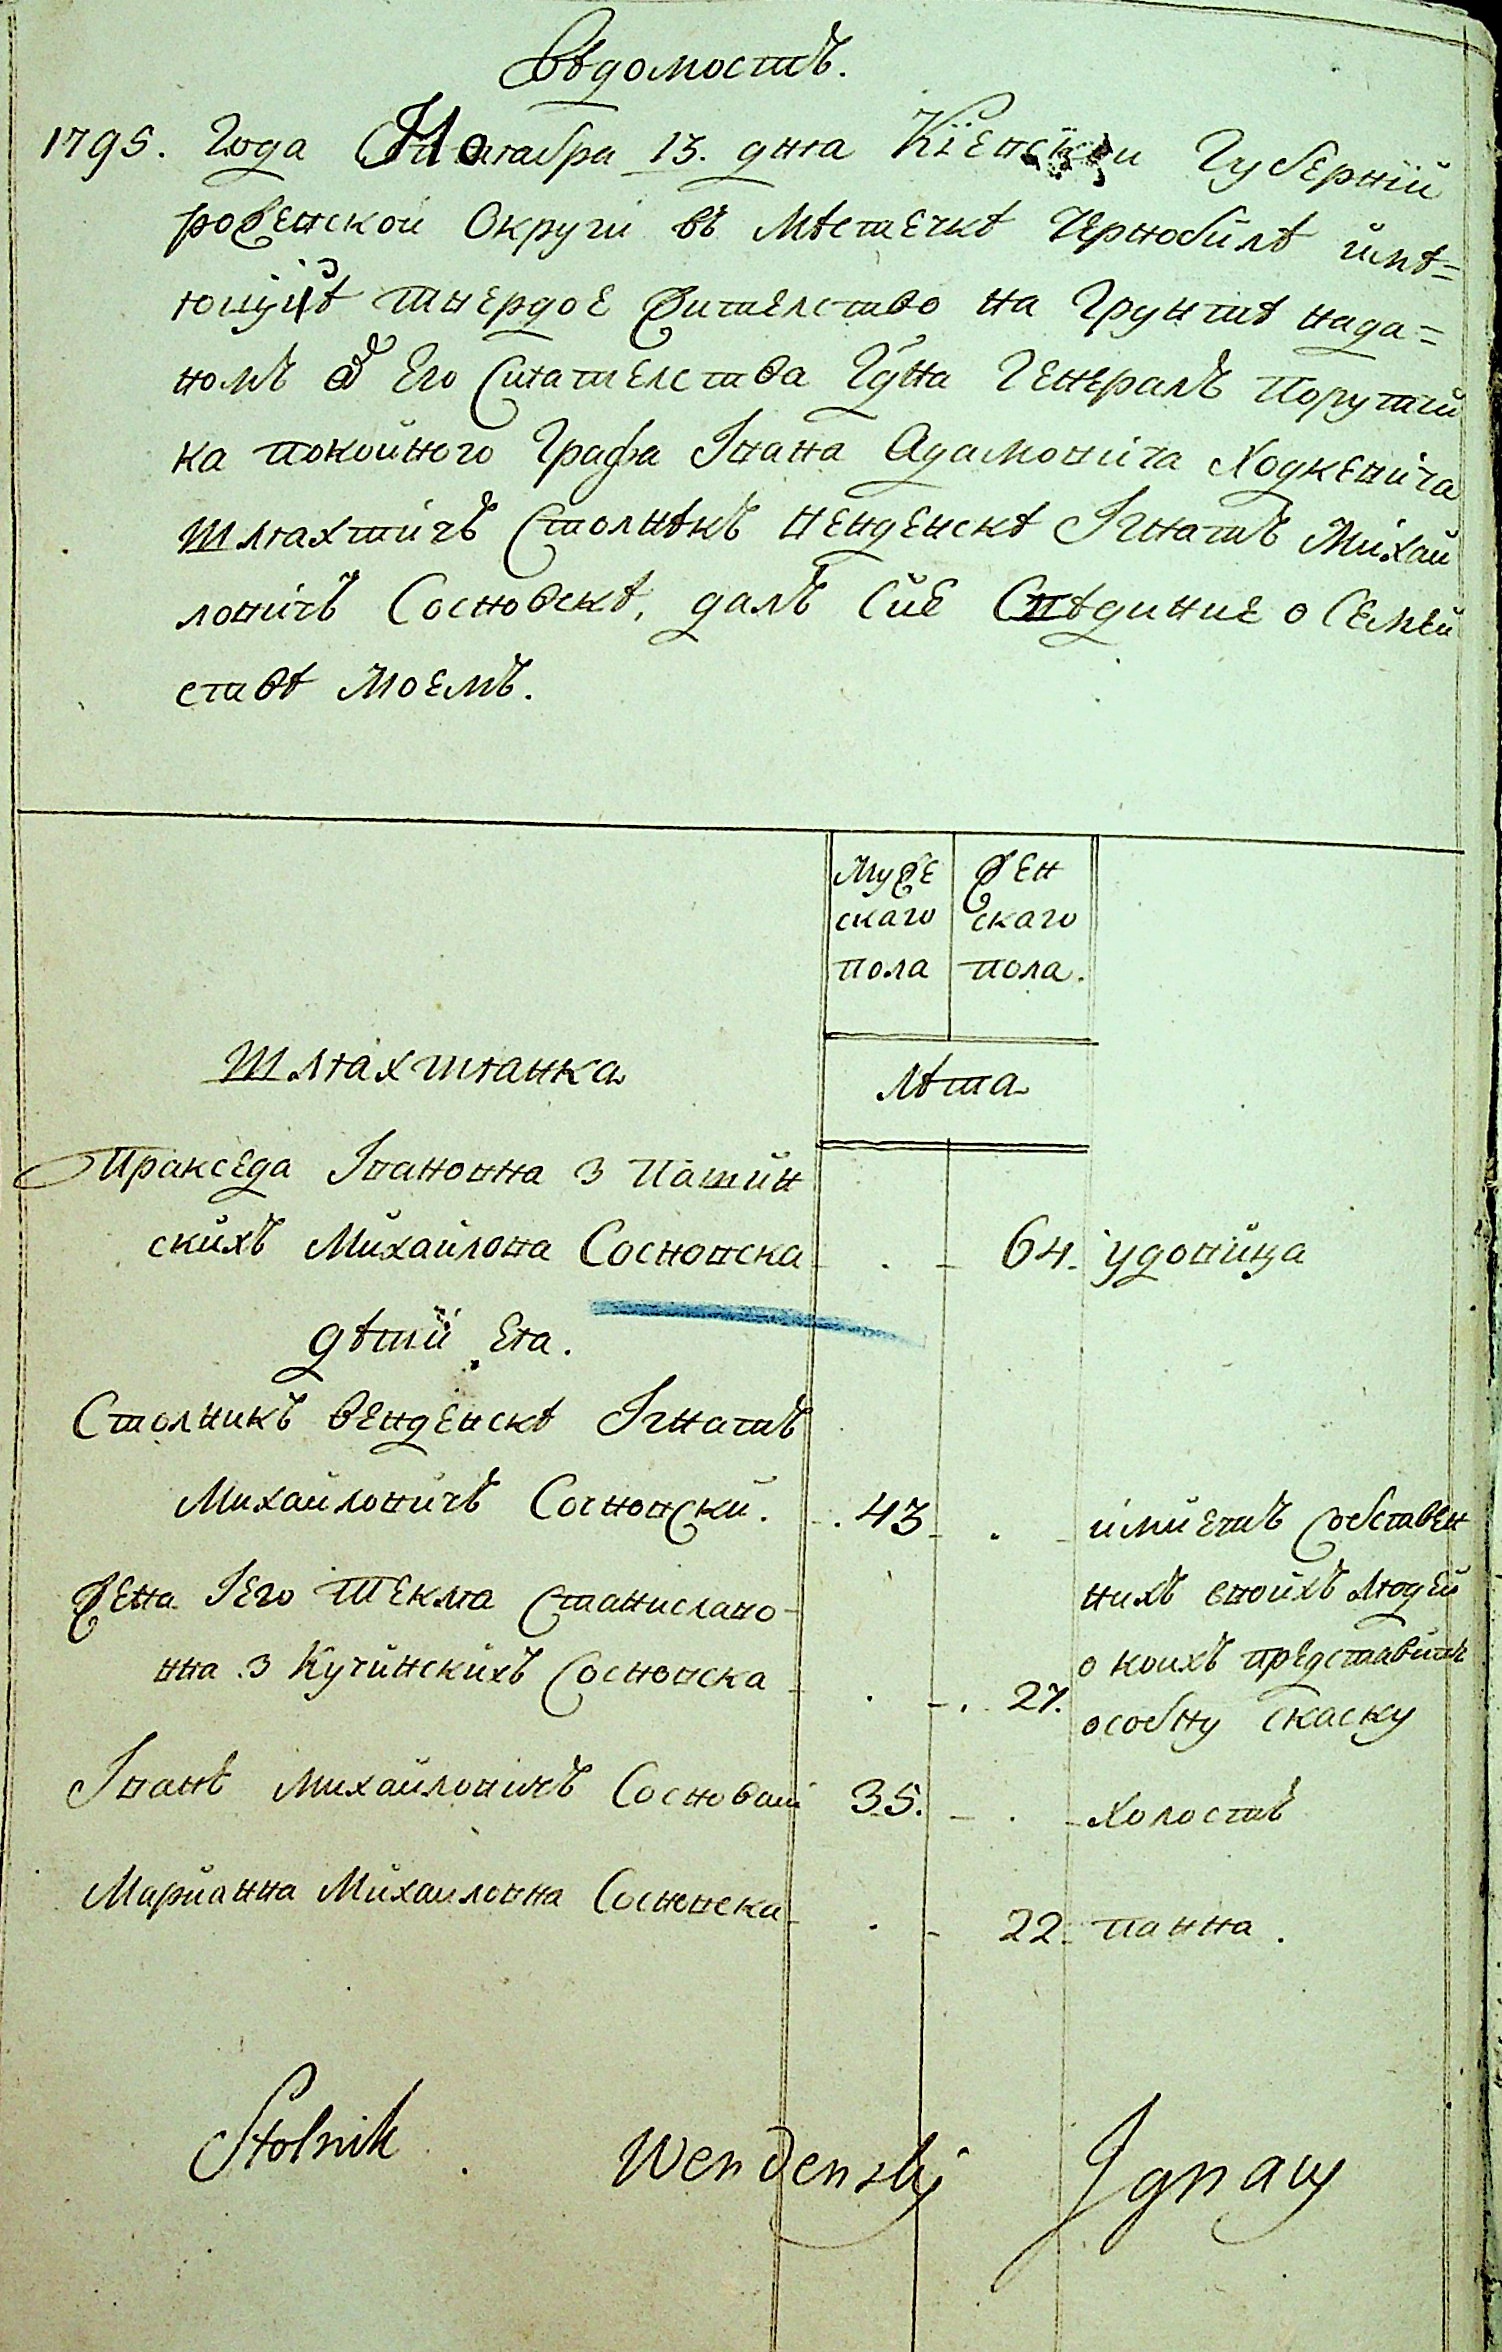 Вѣдомость.
1795. Года Ноября 13. дня Кіевской Губерніи
роженской Округи въ Мѣстечкѣ Чернобилѣ имѣ=
ющій твердое жителство на Грунтѣ нада=
номъ ѿ Его Сиятелства Гдна Генералъ Порутчи
ка покойного Графа Івана Адамовича Ходкевича
Шляхтичъ Столнѣкъ венденскѣ Ігнатъ Михай
ловичъ Сосновскѣ, далъ Сие Свѣдиние о Семей
ствѣ моемъ.
Муже скаго пола
жен скаго пола.
Шляхтянка
лѣта
Пракседа Івановна з Патин
скихъ Михайлова Сосновска . 64. удовица
дѣтий Ея.
Столникъ венденскѣ Ігнатъ
Михайловичъ Сосновски. 43 . имиетъ собствен
Жена Іего Текля Станиславо- нихъ своихъ людей
вна з Кучинскихъ Сосновска . 27. о коихъ представитъ
особну скаску
Іванъ Михайловичъ Сосновски 35. . Холостъ
Марианна Михайловна Сосновска . 22. панна.
Stolnik Wendenskj Jgnacy